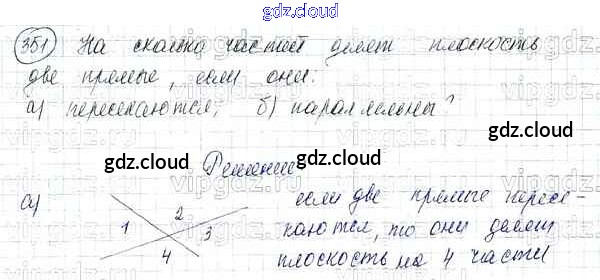 gdz.cloud
351 На сколько частей делят плоскость
две прямые, если они:
а) пересекаются; б) параллельны?
gdz.cloud
gdz.cloud
gdz.cloud
Решение
а) если две прямые пересе-
1 2 3 4
каются, то они делят
плоскость на 4 части
gdz.cloud